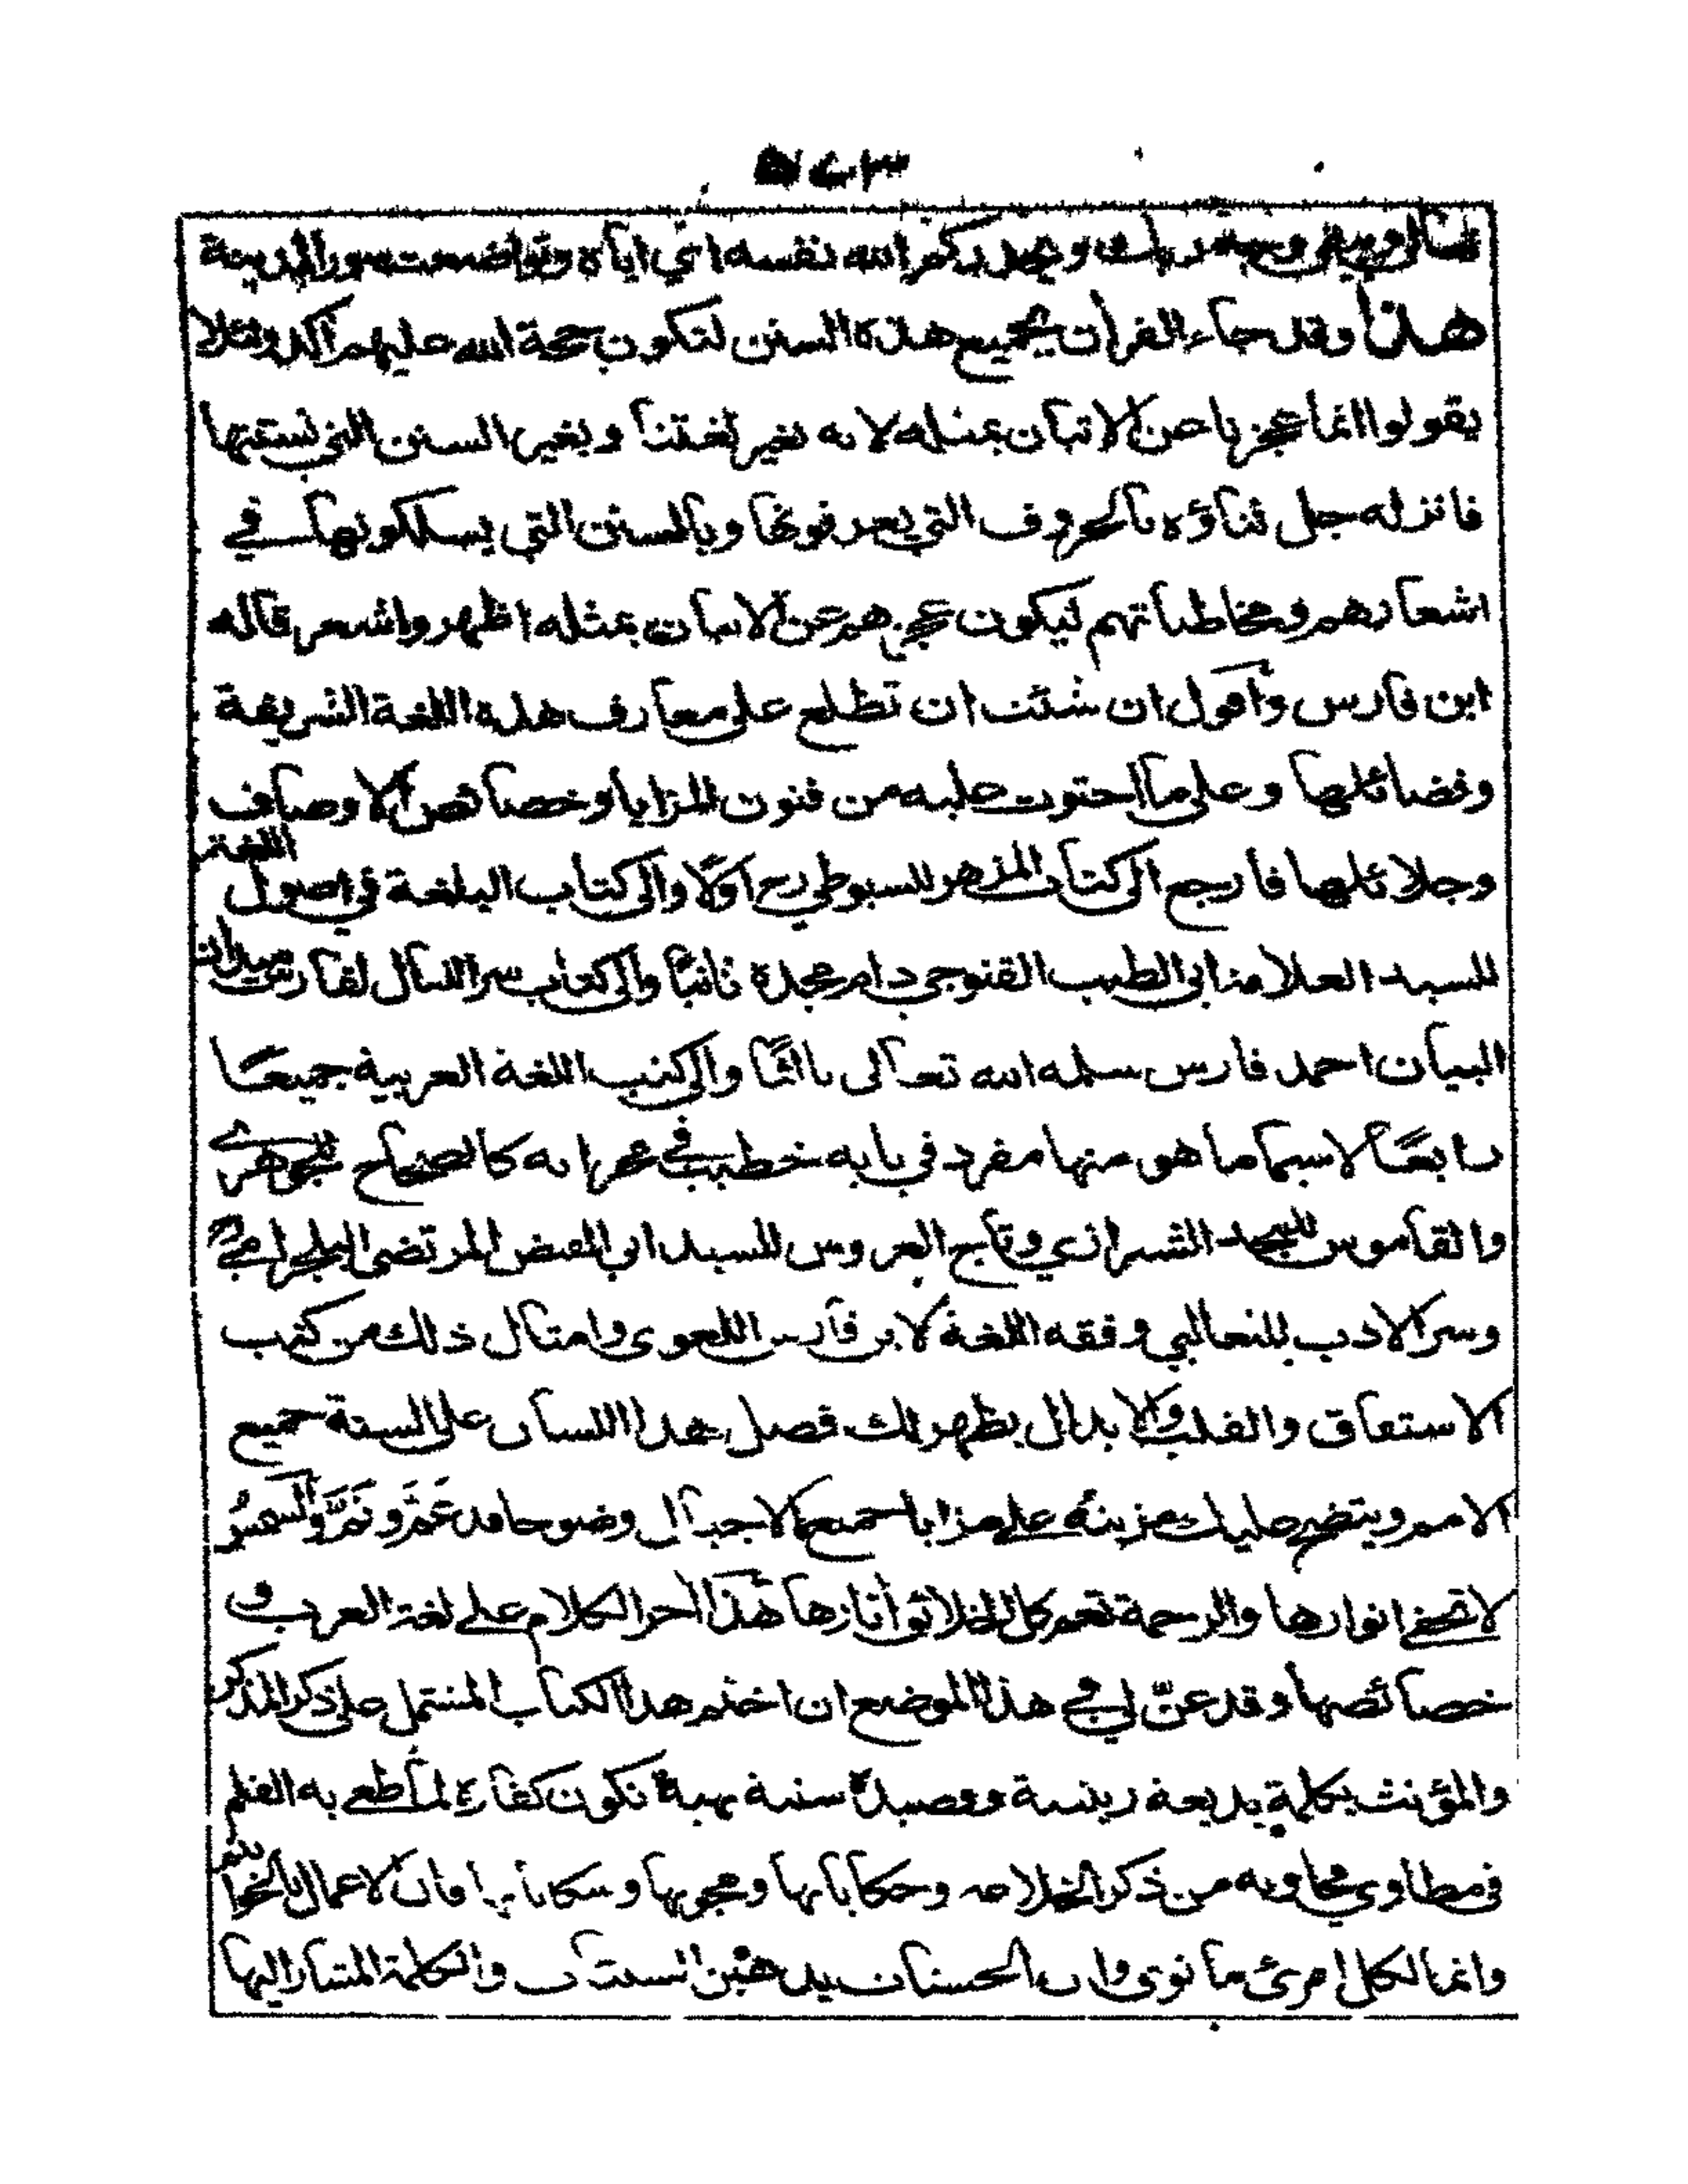 تعالى ويبقى وجه ربك ويحذركم الله نفسه اي اياه وتواضعت سور المدينة
هذا وقد جاء القرأن بجميع هذه السنن لتكون حجة الله عليهم اكد ولئلا
يقولوا انما عجزنا عن الاتيان بمثله لانه بغير لغتنا وبغير السنن التي نستنها
فانزله جل ثناؤه بالحروف التي يعرفونها وبالسنن التي يسلكونها في
اشعارهم ومخاطباتهم ليكون عجزهم عن الاتيان بمثله اظهر واشعر قاله
ابن فارس واقول ان شئت ان تطلع على معارف هذه اللغة الشريفة
وفضائلها وعلى ما احتوت عليه من فنون المزايا وخصائص الاوصاف
وجلائلها فارجع الى كتاب المزهر للسيوطي رح اولا والى كتاب البلغة في اصول اللغة
للسيد العلامة ابي الطيب القنوجي دام مجده ثانيا والى كتاب سر الليال لفارس ميدان
البيان احمد فارس سلمه الله تعالى ثالثا والى كتب اللغة العربية جميعا
رابعا لاسيما ما هو منها مفرد في بابه خطيب في محرابه كالصحاح للجوهري
والقاموس للمجد الشيرازي وتاج العروس للسيد ابي الفيض المرتضى البلجرامي
وسر الادب للثعالبي وفقه اللغة لابن فارس اللغوي وامثال ذلك من كتب
الاشتقاق والقلب والابدال يظهر لك فضل هذا اللسان على السنة جميع
الامم ويتضح عليك مزيته على مزايا جميع الاجيال وضوحا قد عم ونم والشمس
لا تخفى انوارها والرحمة تعم كل الخلائق اثارها هذا اخر الكلام على لغة العرب و
خصائصها وقد عن لي في هذا الموضع ان اختم هذا الكتاب المشتمل على ذكر المذكر
والمؤنث بكلمة بديعة رئيسة وقصيدة سنية بهية تكون كفارة لما طغى به القلم
في مطاوي محاويه من ذكر الخلاعة وحكاياتها ومجونها وشكاياتها فان الاعمال بالخواتيم
وانما لكل امرئ ما نوى وان الحسنات يذهبن السيئات والكلمة المشار اليها